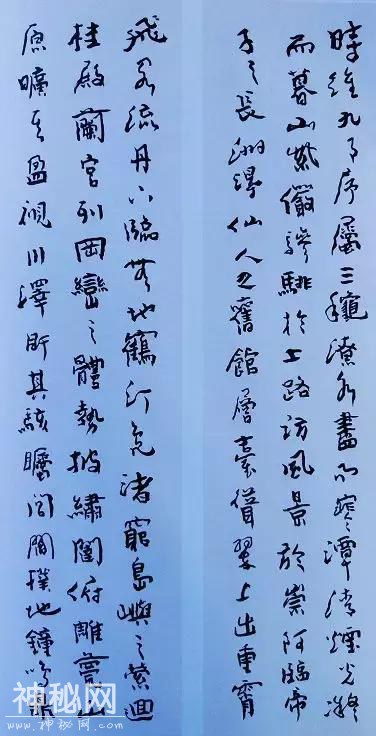 時維九月序屬三龝潦水盡而寒潭清煙光凝
而暮山紫儼驂騑於上路訪風景於崇阿臨帝
子之長洲得仙人之舊館層臺聳翠上出重霄
飛閣流丹下臨無地鶴汀鳧渚窮島嶼之縈迴
桂殿蘭宮列岡巒之體勢披繡闥俯雕甍山
原曠其盈視川澤盱其駭矚閭閻撲地鐘鳴鼎
神秘网
www.神秘网.com